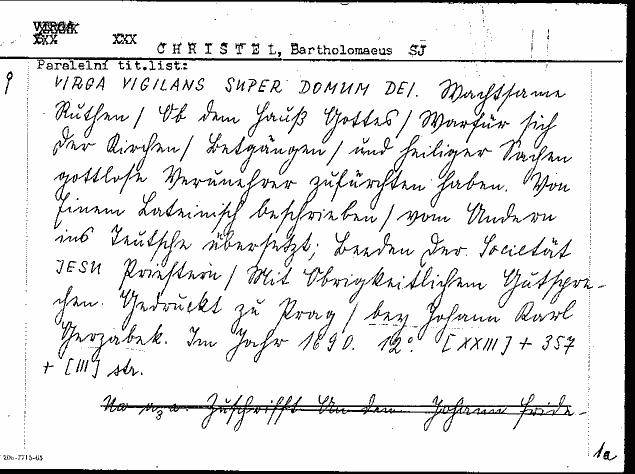 VIRGA
XXX XXX
CHRISTEL, Bartholomaeus SJ
Paralelní tit.list:
VIRGA VIGILANS SUPER DOMUM DEI. Wachtsame
Ruthen / Ob dem Hauß Gottes / Warfür sich
der Kirchen / Betgängen / und heiliger Sachen
gottlose Verunehrer zufürchten haben. Von
Einem Lateinisch beschrieben / vom Andern
ins Teutsche übersetzt; Beeden der Societät
JESU Priestern / Mit Obrigkeitlichem Gutspre-
chen. Gedruckt zu Prag / bey Johann Karl
Gerzabek. Im Jahr 1690. 12°. [XXIII] + 357
+ [III] str.
Na a3a: Zuschrifft An den Johann Fride-
20n-7715-65
1a